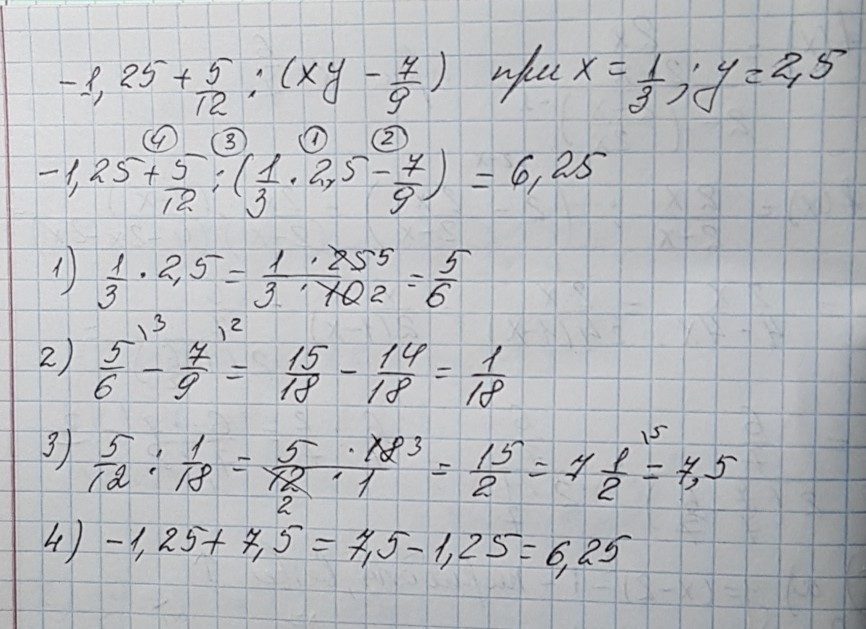 -1,25 + 5/12 : (xy - 7/9) при x = 1/3 ; y = 2,5
④ ③ ① ②
-1,25 + 5/12 : (1/3 · 2,5 - 7/9) = 6,25
1) 1/3 · 2,5 = 1 · 25 5 / 3 · 10 2 = 5/6
2) 5/6 \3 - 7/9 \2 = 15/18 - 14/18 = 1/18
3) 5/12 : 1/18 = 5 · 18 3 / 12 2 · 1 = 15/2 = 7 1/2 \5 = 7,5
4) -1,25 + 7,5 = 7,5 - 1,25 = 6,25